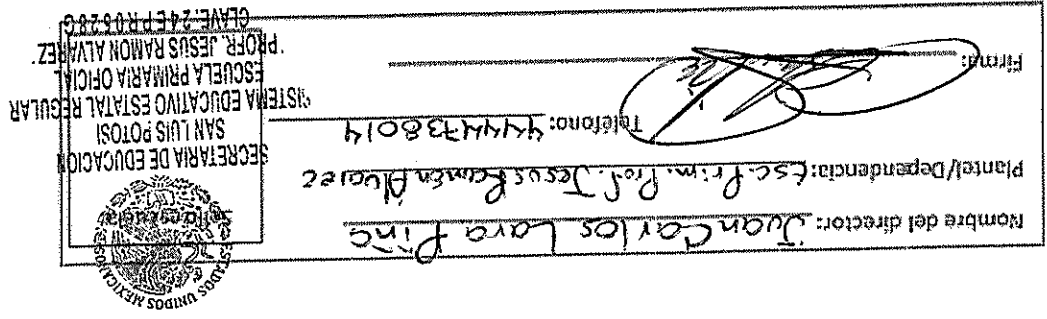 Nombre del director: Juan Carlos Lara Piña
Plantel/Dependencia: Esc. Prim. Prof. Jesus Ramón Alvarez
Teléfono: 4444738014
Firma:
ESTADOS UNIDOS MEXICANOS
Sello escuela
SECRETARIA DE EDUCACION
SAN LUIS POTOSI
SISTEMA EDUCATIVO ESTATAL REGULAR
ESCUELA PRIMARIA OFICIAL
"PROFR. JESUS RAMON ALVAREZ"
CLAVE: 24EPR0628G